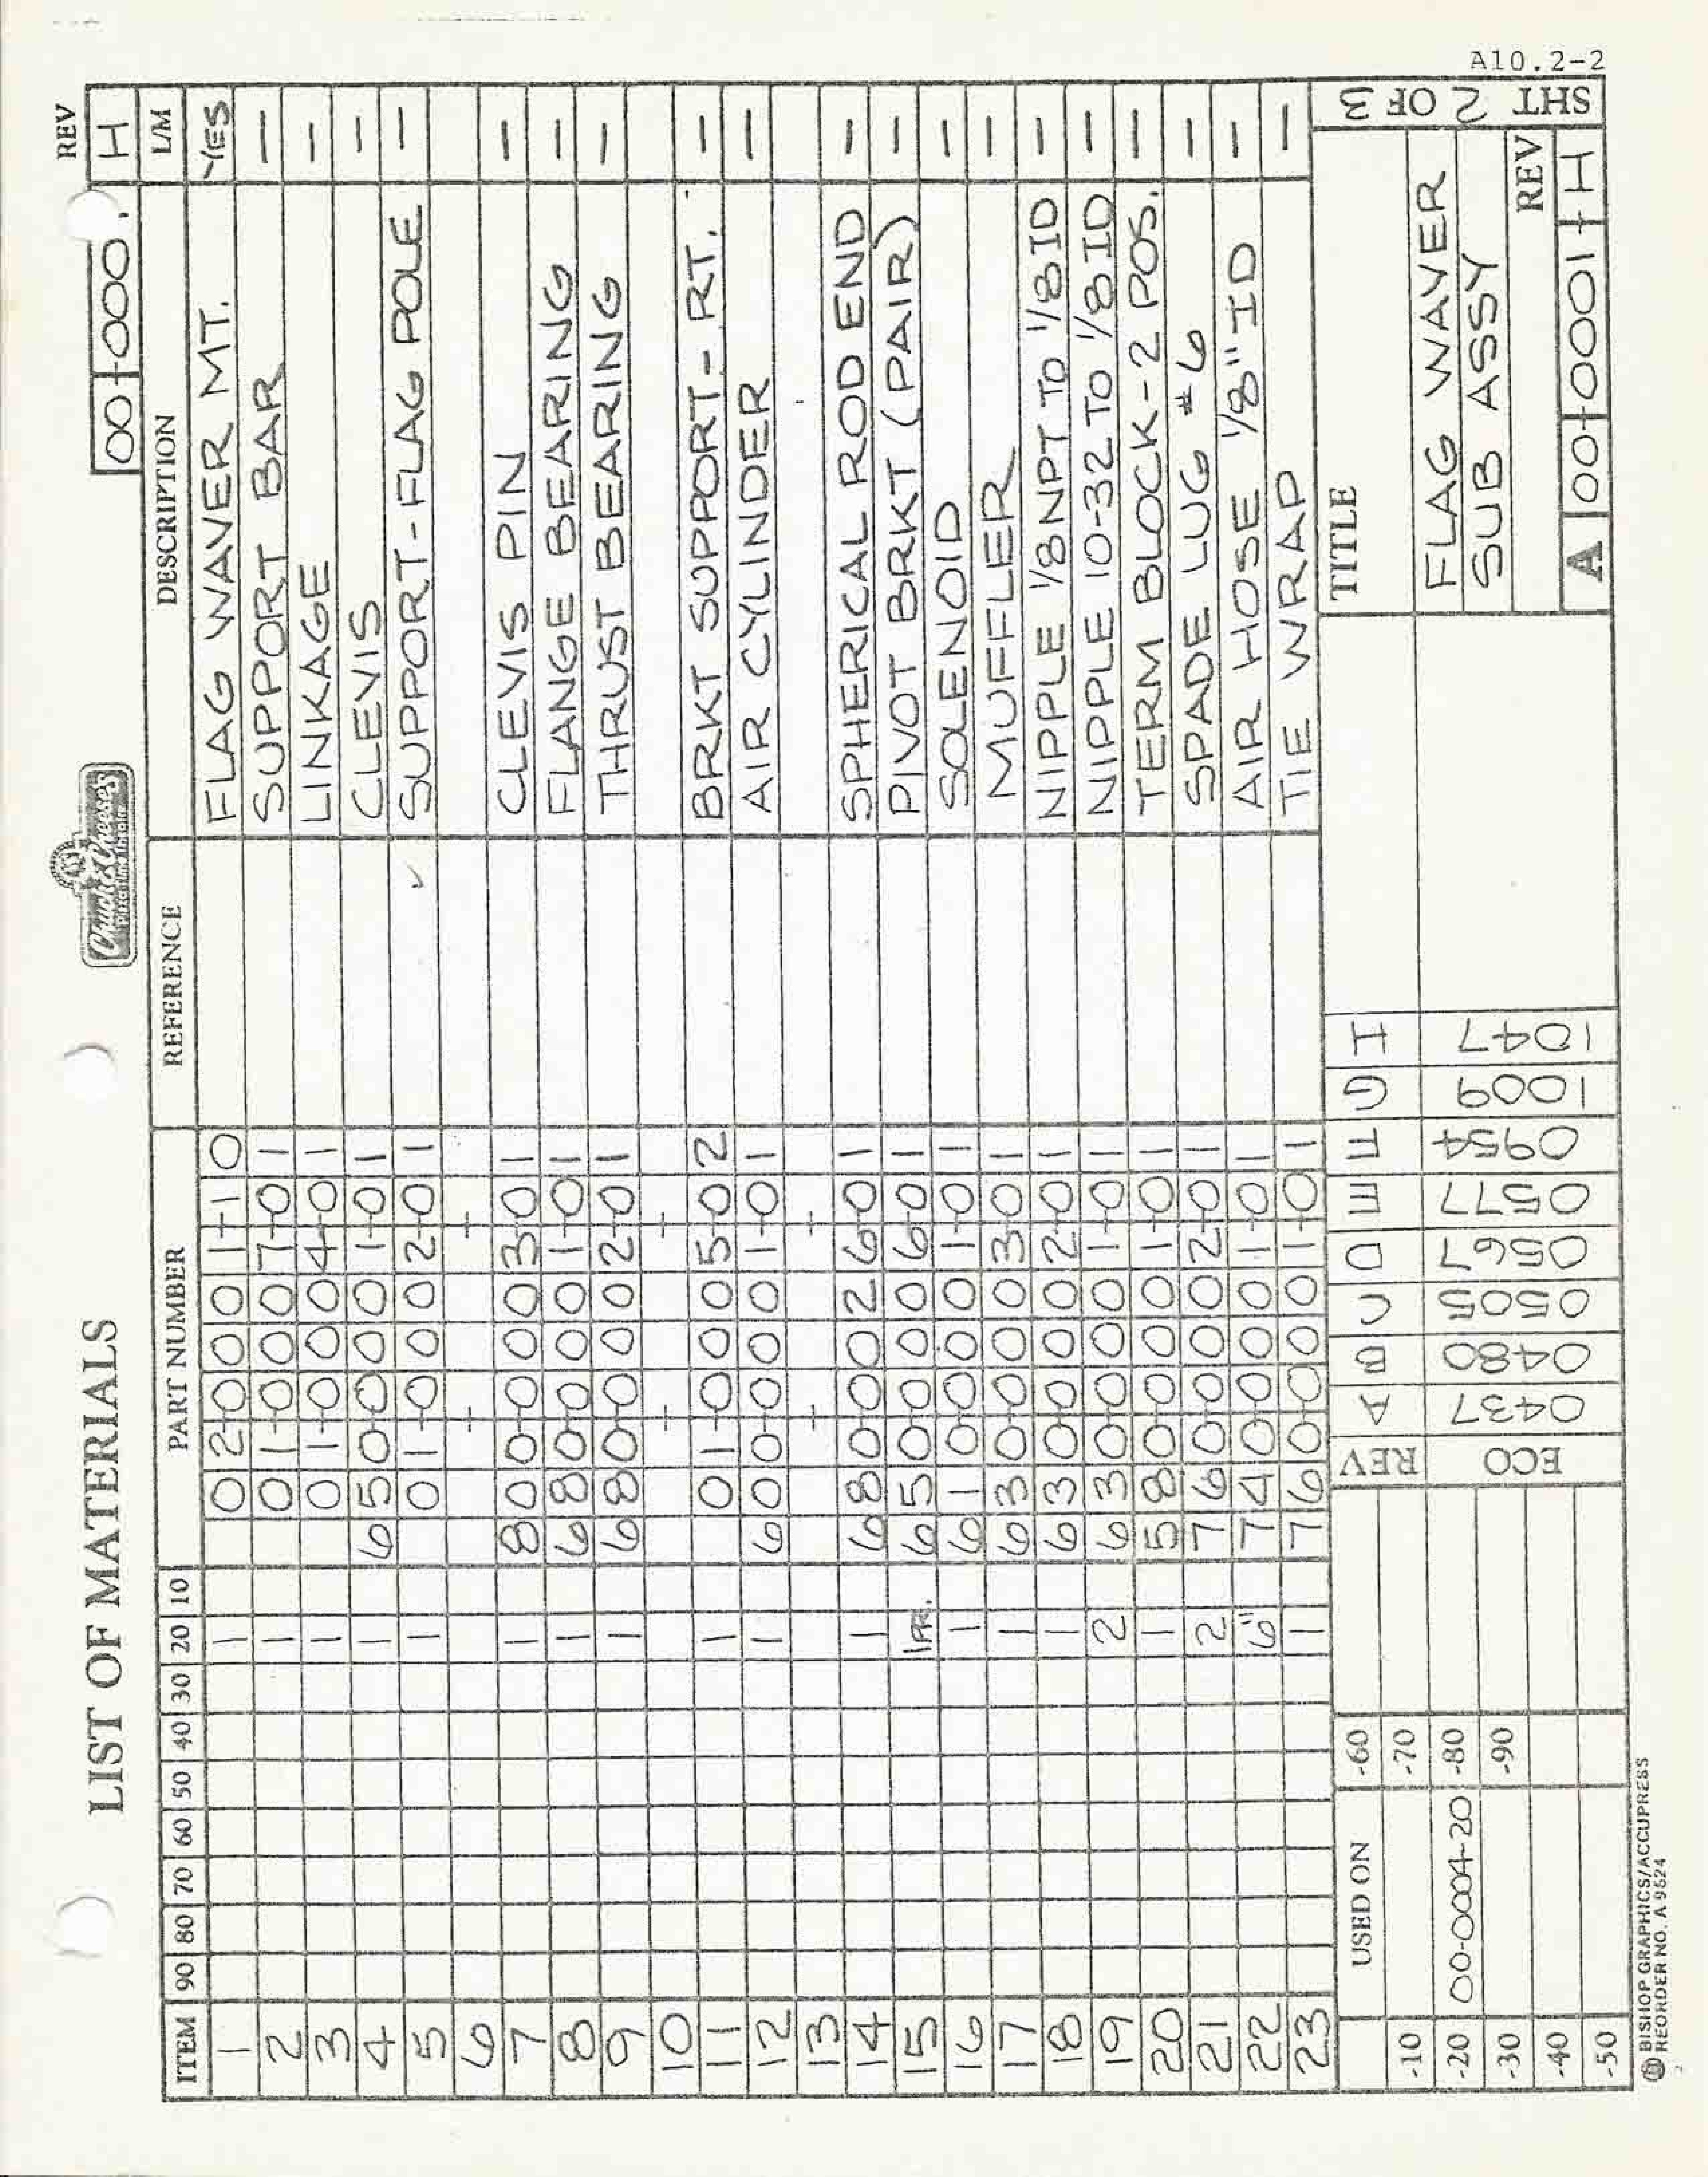 A10.2-2
LIST OF MATERIALS
Chuck E. Cheese's
PIZZA TIME THEATRE
REV
00-0001 H
ITEM 90 80 70 60 50 40 30 20 10 PART NUMBER REFERENCE DESCRIPTION L/M
1 1 02-0001-10 FLAG WAVER MT. YES
2 1 01-0007-01 SUPPORT BAR —
3 1 01-0004-01 LINKAGE —
4 1 650-0001-01 CLEVIS —
5 1 01-0002-01 SUPPORT-FLAG POLE —
6 - -
7 1 800-0003-01 CLEVIS PIN —
8 1 680-0001-01 FLANGE BEARING —
9 1 680-0002-01 THRUST BEARING —
10 - -
11 1 01-0005-02 BRKT SUPPORT-RT. —
12 1 600-0001-01 AIR CYLINDER —
13 - -
14 1 680-0026-01 SPHERICAL ROD END —
15 1PR. 650-0006-01 PIVOT BRKT (PAIR) —
16 1 610-0001-01 SOLENOID —
17 1 630-0003-01 MUFFLER —
18 1 630-0002-01 NIPPLE 1/8NPT TO 1/8 ID —
19 2 630-0001-01 NIPPLE 10-32 TO 1/8 ID —
20 1 580-0001-01 TERM BLOCK-2 POS. —
21 2 760-0002-01 SPADE LUG #6 —
22 6" 740-0001-01 AIR HOSE 1/8" ID —
23 1 760-0001-01 TIE WRAP —
USED ON
-10
-20 00-0004-20
-30
-40
-50
-60
-70
-80
-90
REV A B C D E F G H
ECO 0437 0480 0505 0567 0577 0954 1009 1047
TITLE
FLAG WAVER
SUB ASSY
REV
A 00-0001-H
SHT 2 OF 3
BISHOP GRAPHICS/ACCUPRESS
REORDER NO. A 9624